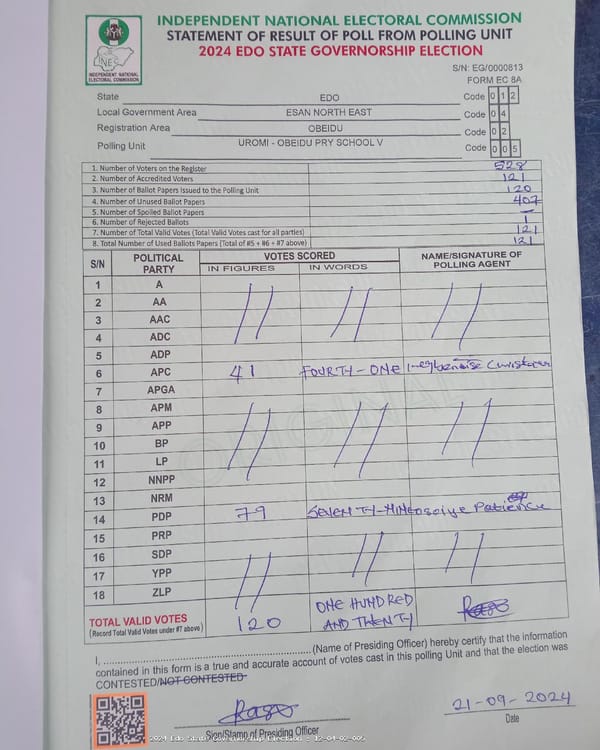 INDEPENDENT NATIONAL ELECTORAL COMMISSION
STATEMENT OF RESULT OF POLL FROM POLLING UNIT
2024 EDO STATE GOVERNORSHIP ELECTION
INEC
INDEPENDENT NATIONAL ELECTORAL COMMISSION
S/N: EG/0000813
FORM EC 8A
State EDO Code 0 1 2
Local Government Area ESAN NORTH EAST Code 0 4
Registration Area OBEIDU Code 0 2
Polling Unit UROMI - OBEIDU PRY SCHOOL V Code 0 0 5
1. Number of Voters on the Register 528
2. Number of Accredited Voters 121
3. Number of Ballot Papers Issued to the Polling Unit 120
4. Number of Unused Ballot Papers 407
5. Number of Spoiled Ballot Papers –
6. Number of Rejected Ballots 1
7. Number of Total Valid Votes (Total Valid Votes cast for all parties) 121
8. Total Number of Used Ballots Papers (Total of #5 + #6 + #7 above) 121
S/N POLITICAL PARTY VOTES SCORED NAME/SIGNATURE OF POLLING AGENT
IN FIGURES IN WORDS
1 A
2 AA
3 AAC
4 ADC
5 ADP
6 APC 41 FOURTY-ONE
7 APGA
8 APM
9 APP
10 BP
11 LP
12 NNPP
13 NRM
14 PDP 79 SEVENTY-NINE Patience
15 PRP
16 SDP
17 YPP
18 ZLP
TOTAL VALID VOTES 120 ONE HUNDRED AND TWENTY
(Record Total Valid Votes under #7 above)
I, ...(Name of Presiding Officer) hereby certify that the information
contained in this form is a true and accurate account of votes cast in this polling Unit and that the election was
CONTESTED/NOT CONTESTED
21-09-2024
Sign/Stamp of Presiding Officer Date
2024 Edo State Governorship Election - 12-04-02-005